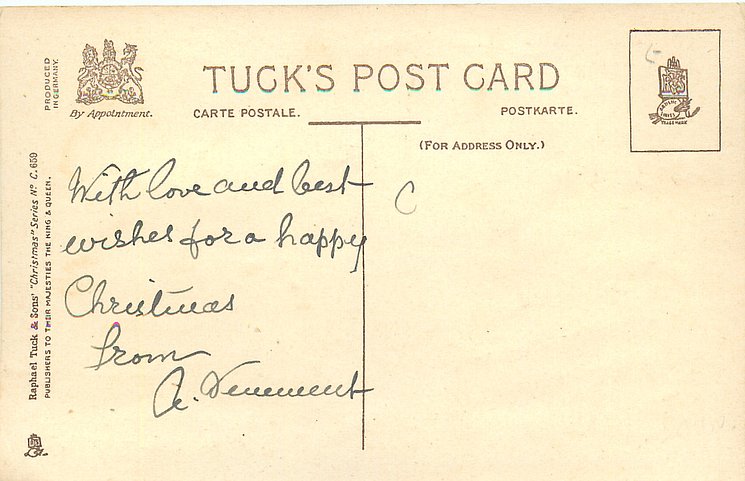 PRODUCED
IN GERMANY.
By Appointment.
TUCK'S POST CARD
CARTE POSTALE.
POSTKARTE.
(FOR ADDRESS ONLY.)
Raphael Tuck & Sons' "Christmas" Series Nº C. 659
PUBLISHERS TO THEIR MAJESTIES THE KING & QUEEN.
With love and best
wishes for a happy
Christmas
from
A.
C
TRADE MARK